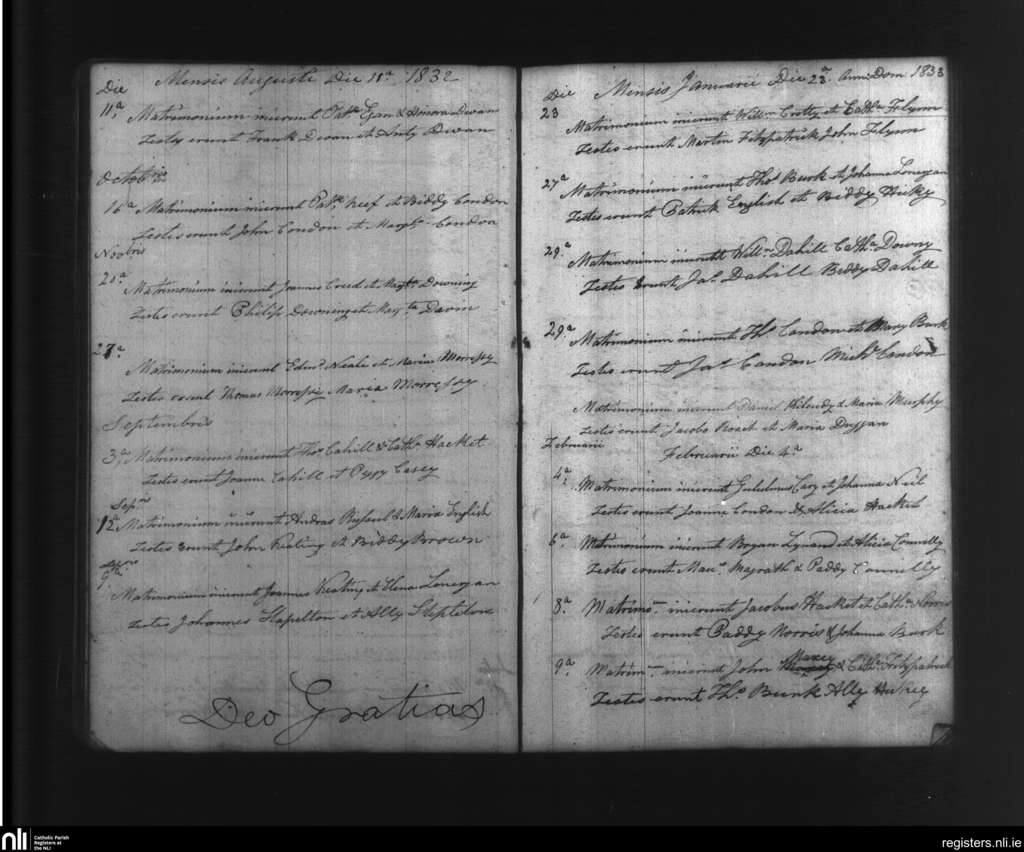 Die Mensis Augusti Die 11a 1832
11a Matrimonium inierunt Patk Egan & Honora Dwan
Testes erunt Frank Dwan et Anty Dwan
Octobris
16a Matrimonium inierunt Patk Keef et Biddy Condon
Testes erunt John Condon et Margt Condon
Novbris
20a Matrimonium inierunt Joannes Creed et Margt Downing
Testes erunt Philip Downing et Marg ta Davin
27a
Matrimonium inierunt Edmd Neale et Maria Morrossy
Testes erunt Thomas Morrossy Maria Morrossy
Septembris
3a Matrimonium inierunt Thos Cahill & Cathe Hacket
Testes erunt Joanne Cahill et Peggy Casey
Sepms
12 Matrimonium inierunt Andras Russel & Maria English
Testes erunt John Keating et Biddy Brown
9a
Matrimonium inierunt Joannes Keating et Elena Lonegan
Testes Johannes Stapelton et Ally Stapleton
Deo Gratias
Die Mensis Januarii Die 23a Anno Dom 1833
23 Matrimonium inierunt Willm Crotty et Catha Flynn
Testes erunt Martin Fitzpatrick John Flynn
27a Matrimonium inierunt Thos Burk et Johanna Lonegan
Testes erunt Patrick English et Biddy Hicky
29a Matrimonium inierunt Willm Dahill Catha Downy
Testes erunt Jas Dahill Biddy Dahill
29a Matrimonium inierunt Thos Condon et Mary Burk
Testes erunt Jas Condon Michl Condon
Matrimonium inierunt Daniel & Maria Murphy
Testes erunt Jacobo Roach et Maria
Februarii
Februarii Die 4a
4a Matrimonium inierunt Gulielmus Cary et Johanna Neil
Testes erunt Joanne Condon & Alicia Hacket
6a Matrimonium inierunt Bryan Lynard et Alicia Connelly
Testes erunt Mau Magrath & Paddy Connelly
8a Matrim inierunt Jacobus Hacket et Catha Norris
Testes erunt Paddy Norris & Johanna Burk
9a Matrim inierunt John Maxey & Catha Fitzpatrick
Testes erunt Thos Burk Ally Hickey
nli
Catholic Parish
Registers at
the NLI
registers.nli.ie